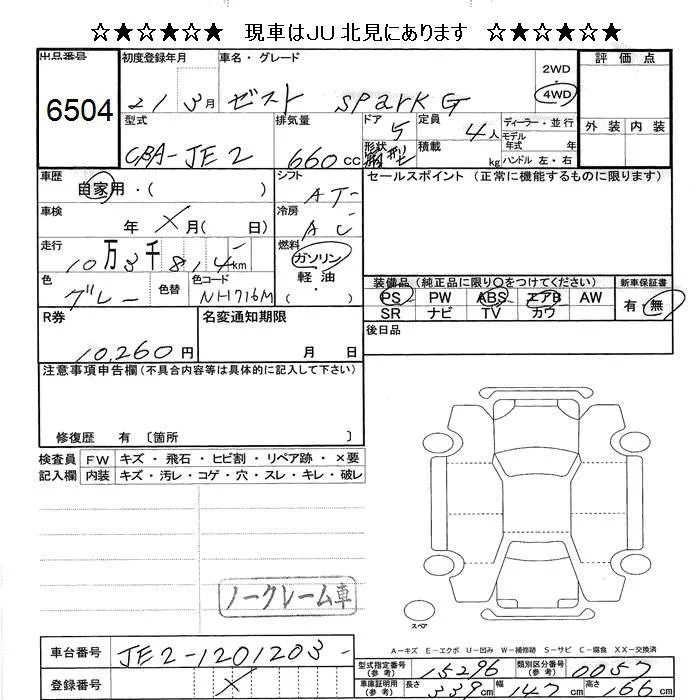 ☆★☆★☆★☆ 現車はJU 北見にあります ☆★☆★☆★☆
出品番号 初度登録年月 車名・グレード 評価点
6504 21 3月 ゼスト SPARK G 2WD 4WD
型式 排気量 ドア 定員 ディーラー・並行 外装 内装
CBA-JE2 660cc 5 4人 モデル年式 年
形状 箱型 積載 kg ハンドル 左・右
車歴 自家用・( ) シフト AT セールスポイント (正常に機能するものに限ります)
車検 年 X 月( 日) 冷房 AC
走行 10万3千814km 燃料 ガソリン 軽油 ・( )
色 グレー 色替 色コード NH716M
装備品 (純正品に限り○をつけてください) 新車保証書
PS PW ABS エアB AW 有・無
SR ナビ TV カワ
R券 10,260円 名変通知期限 月 日 後日品
注意事項申告欄(不具合内容等は具体的に記入して下さい)
修復歴 有 〔箇所 〕
検査員 FW キズ・飛石・ヒビ割・リペア跡・×要
記入欄 内装 キズ・汚レ・コゲ・穴・スレ・キレ・破レ
ノークレーム車
スペア
A-キズ E-エクボ U-凹み W-補修跡 S-サビ C-腐食 XX-交換済
車台番号 JE2-1201203
型式指定番号(参考) 15296 類別区分番号(参考) 0057
登録番号 X
車庫証明用(参考) 長さ 339cm 幅 147cm 高さ 166cm